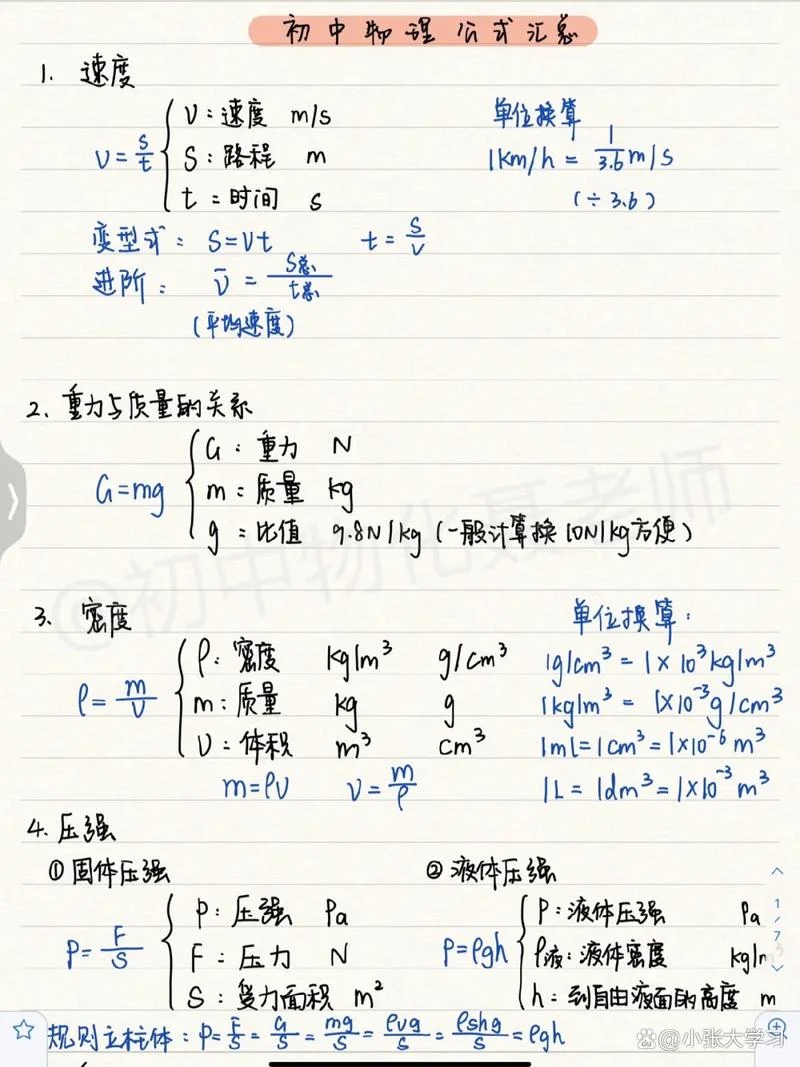 初中物理公式汇总
1. 速度
V = s/t { V：速度 m/s
S：路程 m
t = 时间 s
单位换算
1Km/h = 1/3.6 m/s
(÷3.6)
变型式：S=Vt t = S/V
进阶：V̄ = S总/t总
(平均速度)
2. 重力与质量的关系
G=mg { G：重力 N
m：质量 kg
g = 比值 9.8N/kg (一般计算换10N/kg方便)
@初中物化聂老师
3. 密度
ρ = m/V { ρ：密度 kg/m³ g/cm³
m：质量 kg g
V：体积 m³ cm³
m=ρV V = m/ρ
单位换算：
1g/cm³ = 1×10³kg/m³
1kg/m³ = 1×10⁻³g/cm³
1ml=1cm³=1×10⁻⁶m³
1L=1dm³=1×10⁻³m³
4. 压强
① 固体压强
P = F/S { P：压强 Pa
F：压力 N
S：受力面积 m²
② 液体压强
P=ρgh { P：液体压强 Pa
ρ液：液体密度 kg/m³
h：到自由液面的高度 m
规则立柱体：P = F/S = G/S = mg/S = ρVg/S = ρShg/S = ρgh
1/7
小张大学习